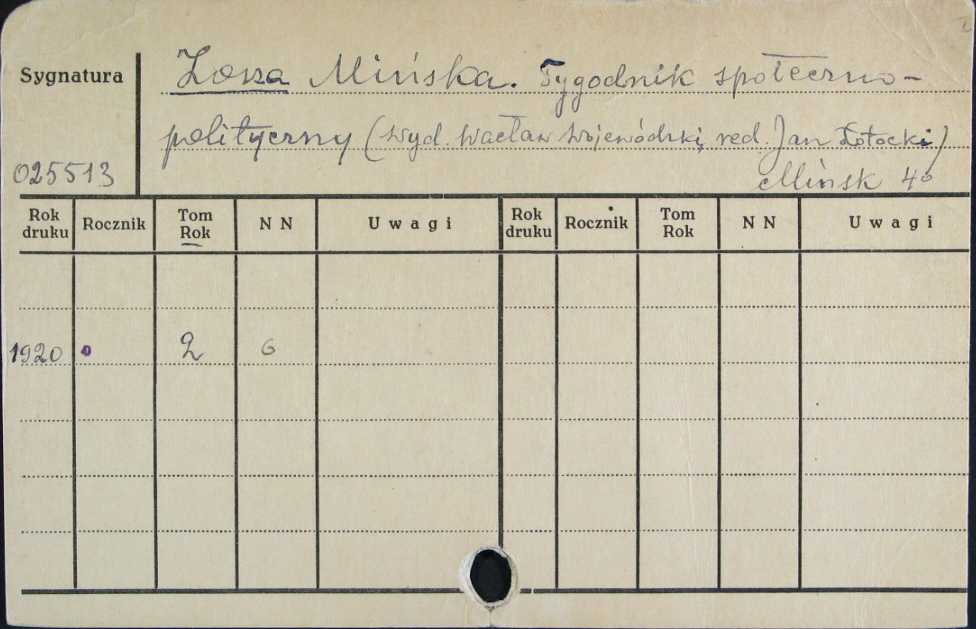 Sygnatura
Zorza Mińska. Tygodnik społeczno-
polityczny (wyd. Wacław Wojewódzki, red. Jan Złotocki)
025513
Mińsk 4o
Rok druku Rocznik Tom Rok NN Uwagi Rok druku Rocznik Tom Rok NN Uwagi
1920 0 2 6